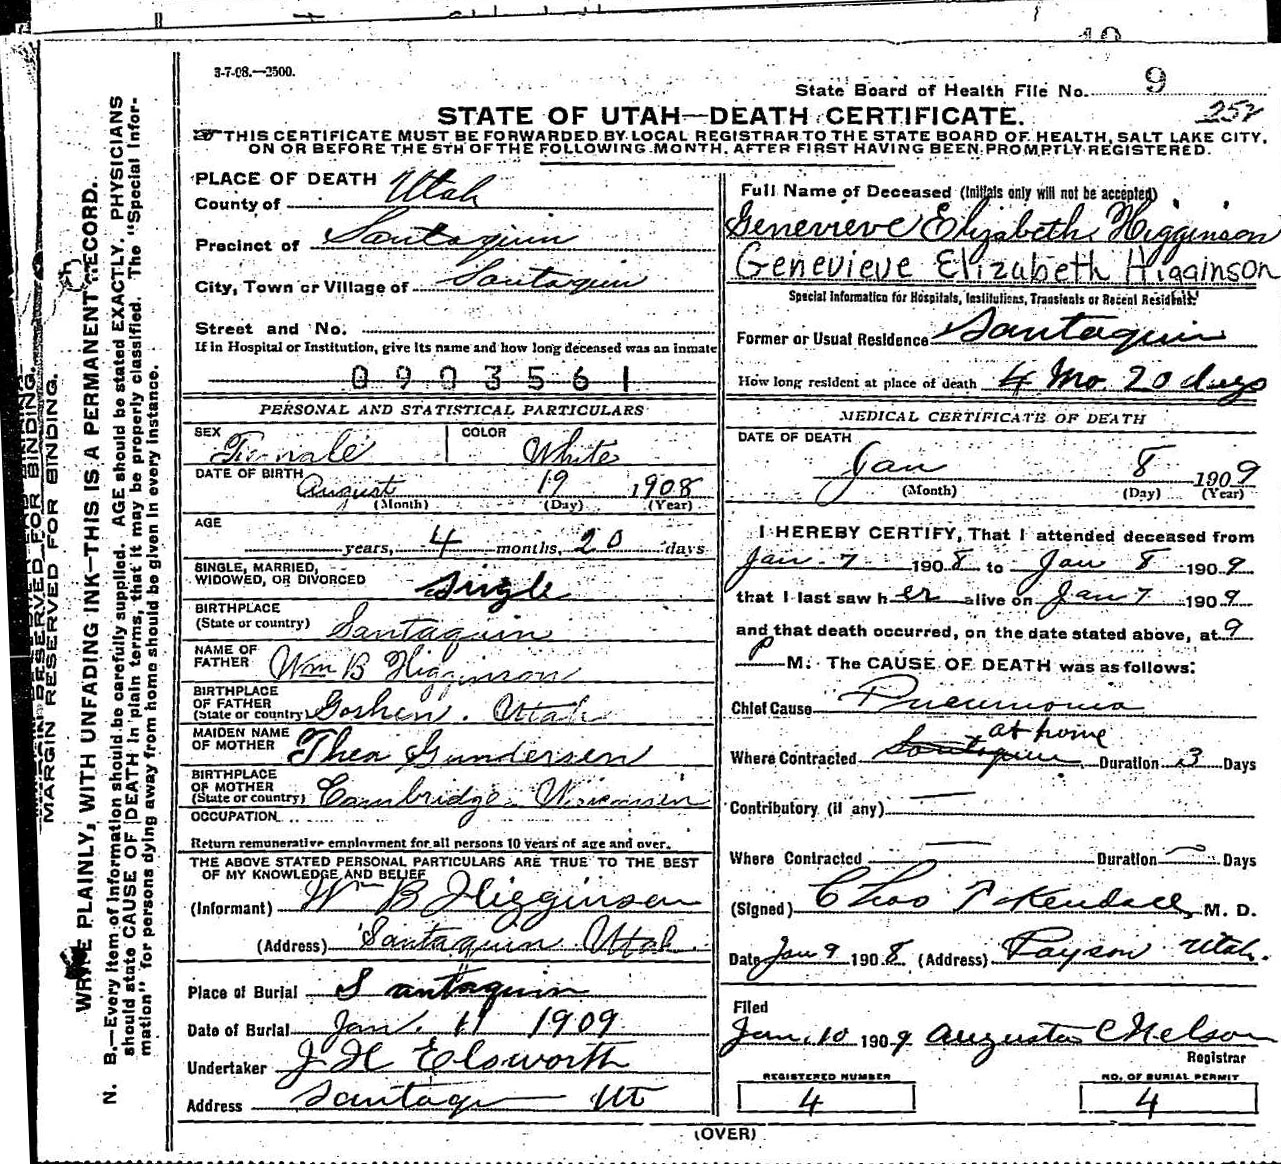 3-7-08.—2500.
State Board of Health File No. 9
STATE OF UTAH—DEATH CERTIFICATE.
252
THIS CERTIFICATE MUST BE FORWARDED BY LOCAL REGISTRAR TO THE STATE BOARD OF HEALTH, SALT LAKE CITY,
ON OR BEFORE THE 5TH OF THE FOLLOWING MONTH, AFTER FIRST HAVING BEEN PROMPTLY REGISTERED.
MARGIN RESERVED FOR BINDING.
WRITE PLAINLY, WITH UNFADING INK—THIS IS A PERMANENT RECORD.
N. B.—Every item of information should be carefully supplied. AGE should be stated EXACTLY. PHYSICIANS
should state CAUSE OF DEATH in plain terms, that it may be properly classified. The "Special Infor-
mation" for persons dying away from home should be given in every instance.
PLACE OF DEATH
County of Utah
Precinct of Santaquin
City, Town or Village of Santaquin
Street and No.
If in Hospital or Institution, give its name and how long deceased was an inmate
0903561
PERSONAL AND STATISTICAL PARTICULARS
SEX Female COLOR White
DATE OF BIRTH August 19 1908
(Month) (Day) (Year)
AGE
years, 4 months, 20 days
SINGLE, MARRIED,
WIDOWED, OR DIVORCED Single
BIRTHPLACE
(State or country) Santaquin
NAME OF
FATHER Wm B Higginson
BIRTHPLACE
OF FATHER
(State or country) Goshen. Utah
MAIDEN NAME
OF MOTHER Thea Gundersen
BIRTHPLACE
OF MOTHER
(State or country) Cambridge Wisconsin
OCCUPATION
Return remunerative employment for all persons 10 years of age and over.
THE ABOVE STATED PERSONAL PARTICULARS ARE TRUE TO THE BEST
OF MY KNOWLEDGE AND BELIEF
(Informant) Wm B Higginson
(Address) Santaquin Utah.
Place of Burial Santaquin
Date of Burial Jan. 11 1909
Undertaker J H Elsworth
Address Santaquin Ut
Full Name of Deceased (Initials only will not be accepted)
Genevieve Elizabeth Higginson
Genevieve Elizabeth Higginson
Special Information for Hospitals, Institutions, Transients or Recent Residents
Former or Usual Residence Santaquin
How long resident at place of death 4 Mo. 20 days
MEDICAL CERTIFICATE OF DEATH
DATE OF DEATH
Jan 8 1909
(Month) (Day) (Year)
I HEREBY CERTIFY, That I attended deceased from
Jan 7 1908 to Jan 8 1909
that I last saw her alive on Jan 7 1909
and that death occurred, on the date stated above, at 9
P M. The CAUSE OF DEATH was as follows:
Chief Cause Pneumonia
at home
Where Contracted Santaquin Duration 3 Days
Contributory (if any) —
Where Contracted — Duration — Days
(Signed) Chas T Kendall, M. D.
Date Jan 9 1908 (Address) Payson Utah.
Filed
Jan. 10 1909 Augusta C Nelson
Registrar
REGISTERED NUMBER NO. OF BURIAL PERMIT
4 4
(OVER)